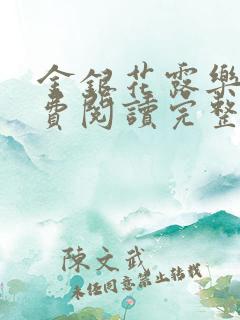 金銀花露樂
費閱讀完整
陳文武
未經同意禁止轉載